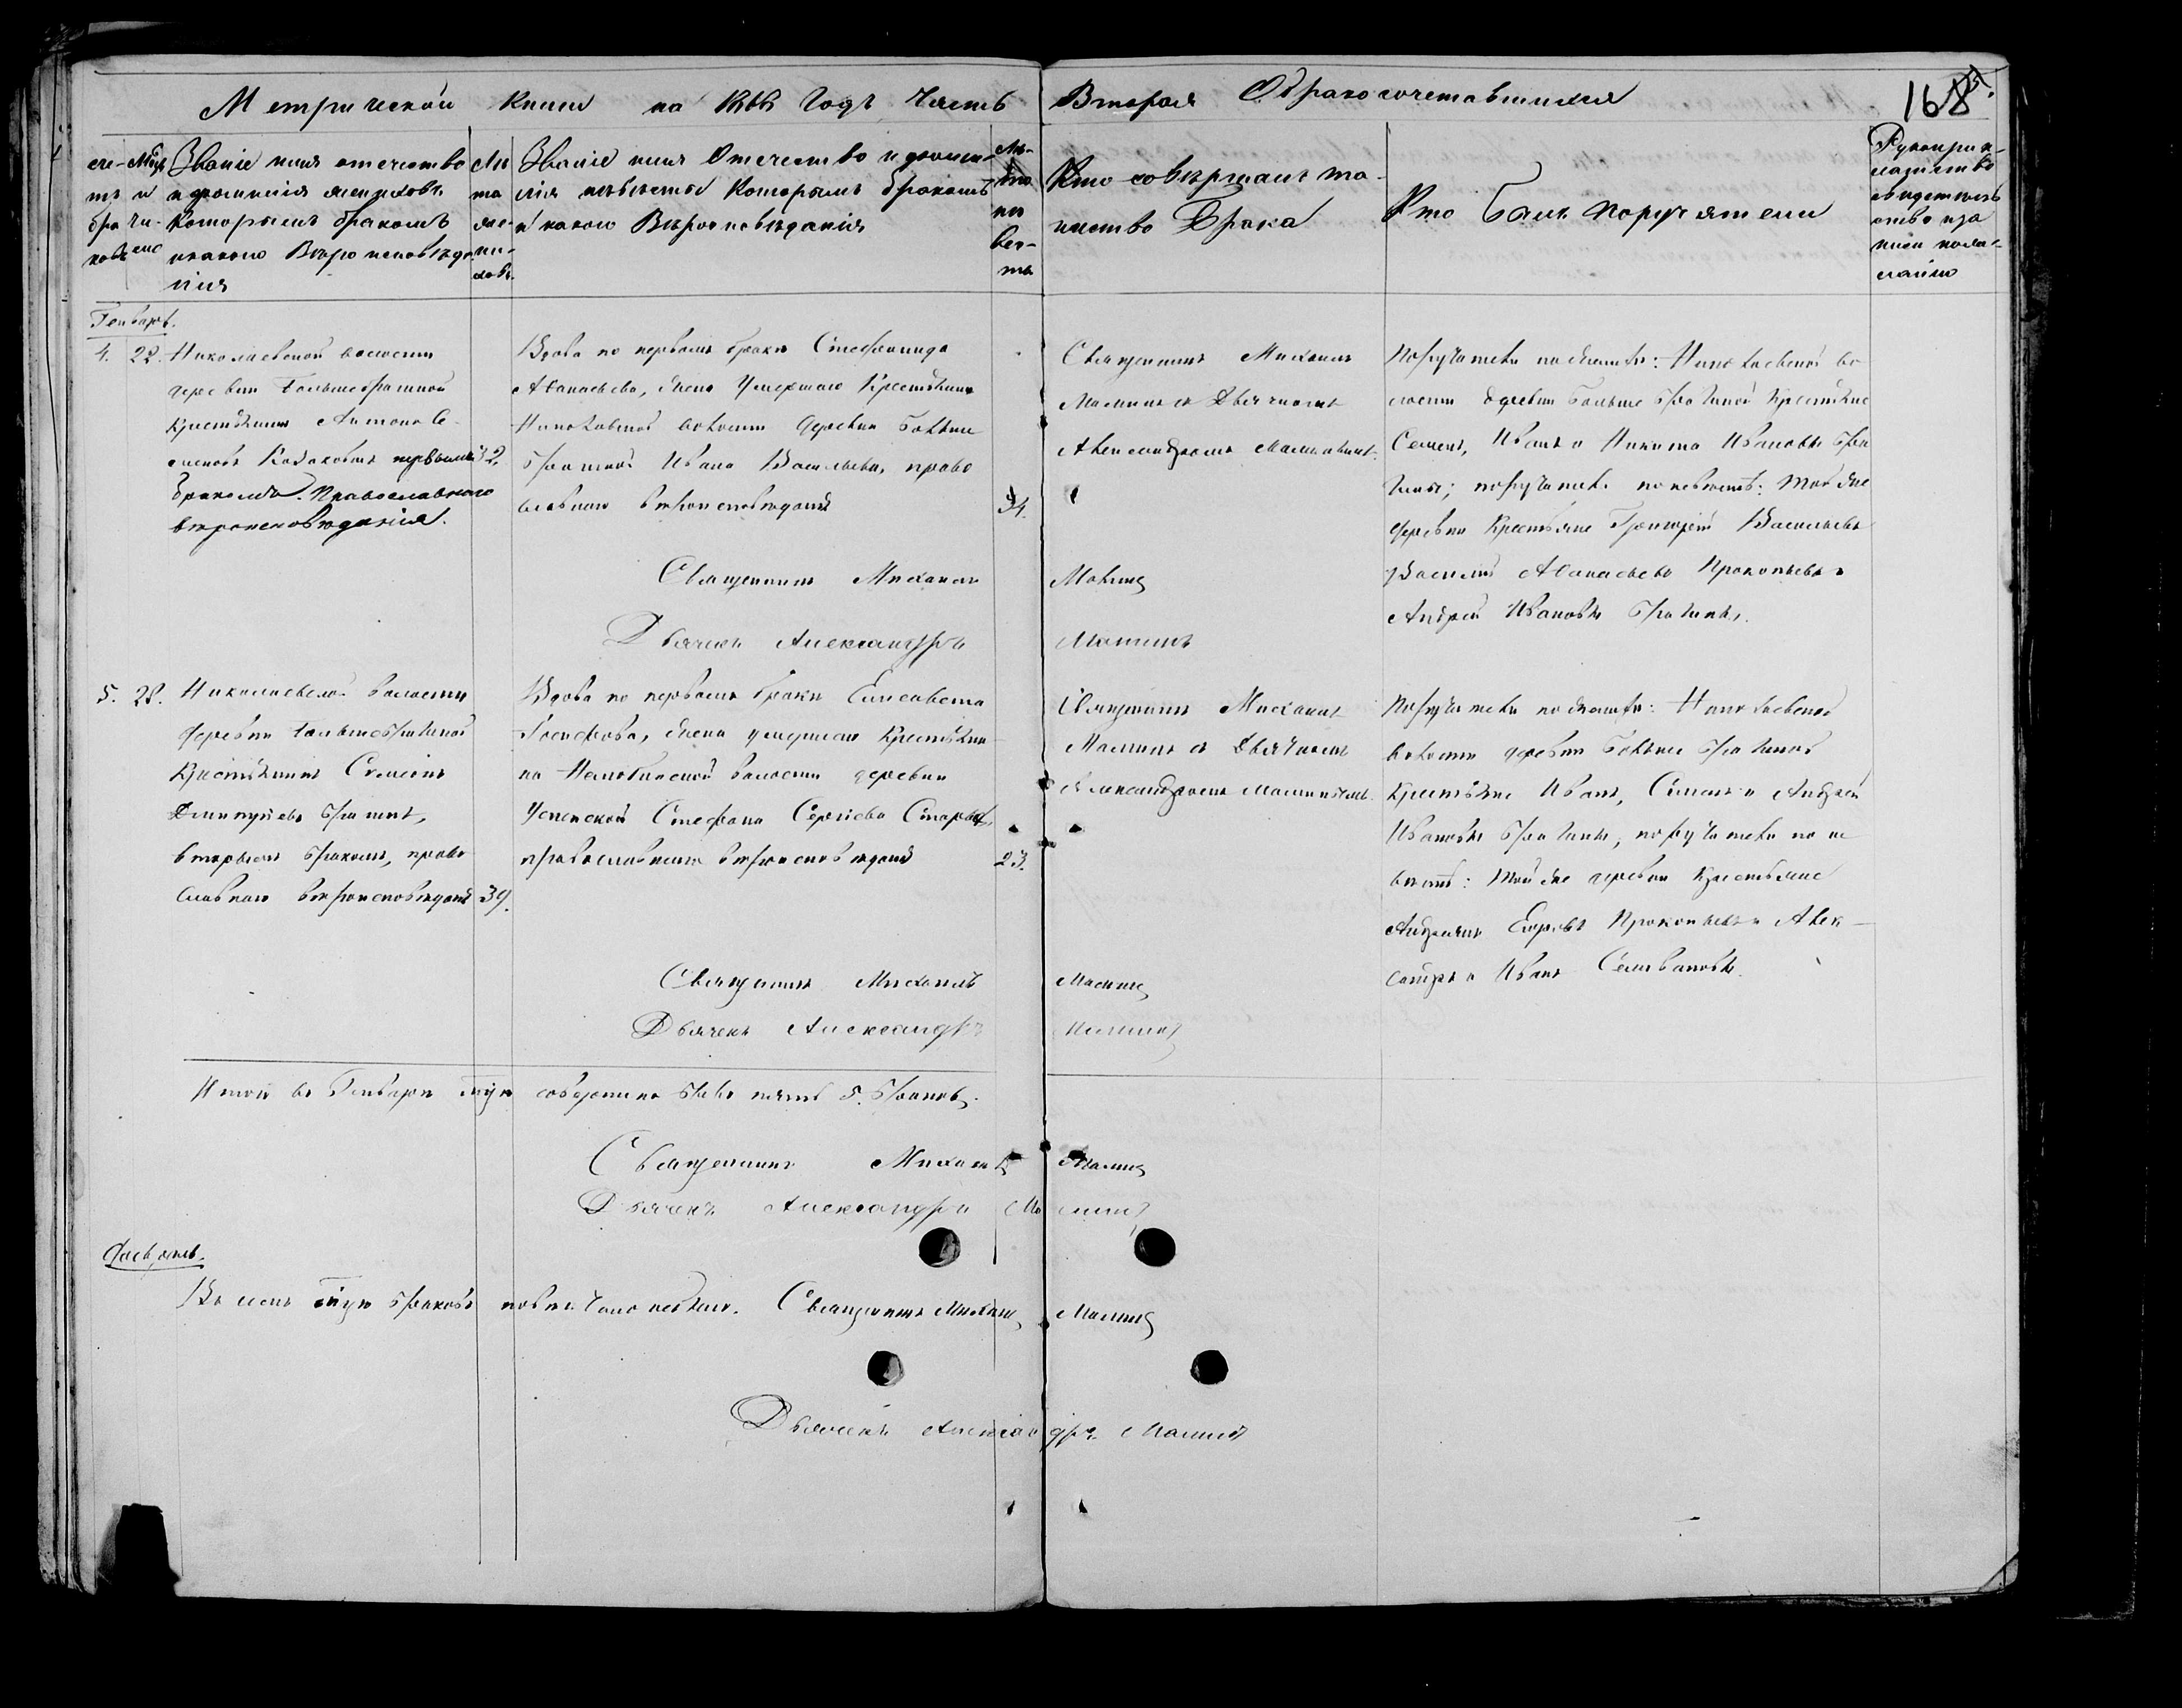 Метрической книги на Годъ, Часть Вторая О бракосочетавшихся
168
сче-
тъ
бра
ковъ
Мѣсц
и
чи-
сло
Званіе имя отечество
и фамилія жениховъ
которымъ бракомъ
и какого Вѣроисповѣда
нія
Лѣ
та
же-
ни-
ховъ
Званіе имя Отечество и фами-
лія невѣсты Которымъ бракомъ
и какого Вѣроисповѣданія
Лѣ-
та
не
вѣс-
ты
Кто совершалъ та-
инство Брака
Кто были поручители
Рукоприк-
ладство
свидетель
ство
записи по же-
ланію
Генварь.
4. 22. Николаевской волости
деревни Больше братиной
Крестьянинъ Антонъ Се-
меновъ Казаковъ первымъ
бракомъ. Православнаго
вѣроисповѣданія.
Вдова по первомъ бракѣ Стефанида
Аѳанасьева, жена умершаго Крестьянина
Николаевской волости деревни Больше
братиной Ивана Васильева, право
славнаго вѣроисповѣданія
Священникъ Михаилъ
Малинъ съ Дьячкомъ
Александромъ Малининымъ
Поручители по женихѣ: Николаевской во
лости деревни Больше Братиной Крестьяне
Семенъ, Иванъ и Никита Ивановы Бра
тины; поручители по невѣстѣ: той же
деревни Крестьяне Григорій Васильевъ
Василій Аѳанасьевъ Прокопьевъ и
Андрей Ивановъ Братины.
Священникъ Михаилъ Малинъ
Дьячекъ Александръ Малинъ
5. 28. Николаевской волости
деревни Больше братиной
Крестьянинъ Симеонъ
Димитріевъ Братинъ,
вторымъ бракомъ, право
славнаго вѣроисповѣданія 39.
Вдова по первомъ бракѣ Елисавета
Іосифова, жена умершаго Крестьяни
на волости деревни
Успенской Стефана Сергіева
православнаго вѣроисповѣданія 23.
Священникъ Михаилъ
Малинъ съ Дьячкомъ
Александромъ Малининымъ.
Поручители по женихѣ: Николаевской
волости деревни Больше Братиной
Крестьяне Иванъ, Симеонъ и Андрей
Ивановы Братины, поручители по не
вѣстѣ: той же деревни Крестьяне
Егоровъ Прокопьевъ и Алек-
сандръ и Иванъ Селивановы.
Священникъ Михаилъ Малинъ
Дьячекъ Александръ Малинъ
Итого въ Генварѣ м҃цѣ совершено было пять 5. браковъ.
Священникъ Михаилъ Малинъ
Дьячекъ Александръ Малинъ
Февраль.
Въ семъ м҃цѣ браковъ повѣнчано не было. Священникъ Михаилъ Малинъ
Дьячекъ Александръ Малинъ